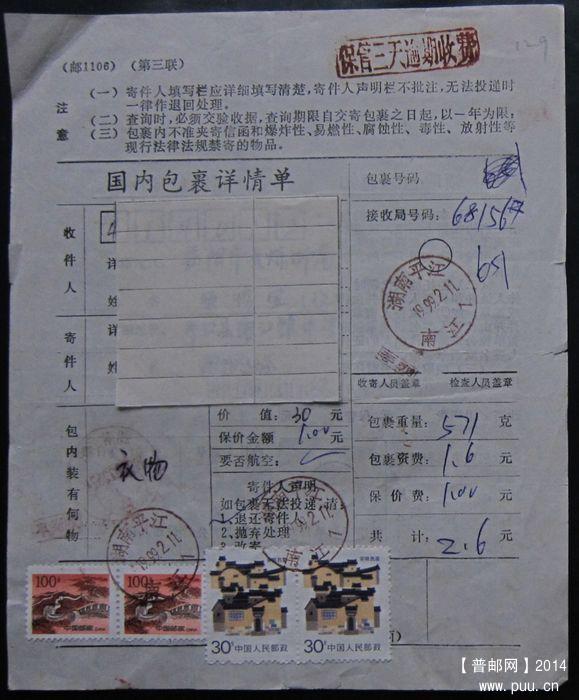 保管三天逾期收费
129
(邮1106) (第三联)
注意
(一) 寄件人填写栏应详细填写清楚,寄件人声明栏不批注,无法投递时
一律作退回处理。
(二) 查询时,必须交验收据,查询期限自交寄包裹之日起,以一年为限;
(三) 包裹内不准夹寄信函和爆炸性、易燃性、腐蚀性、毒性、放射性等
现行法律法规禁寄的物品。
国内包裹详情单
包裹号码
接收局号码:
收件人
详
姓
湖南平江
1999.2.11
南江
寄件人
详
姓
收寄人员盖章 检查人员盖章
包内装有何物
衣物
价 值: 30 元
保价金额 1.00 元
要否航空:
包裹重量: 571 克
包裹资费: 1.6 元
保 价 费: 1.00 元
共 计: 2.6 元
寄件人声明
如包裹无法投递,请:
1.退还寄件人
2.抛弃处理
3.改寄
湖南平江
1999.2.11
湖南平江
南江
100分
中国邮政 CHINA
100分
中国邮政 CHINA
30分 中国人民邮政
30分 中国人民邮政
【普邮网】2014
www.puu.cn